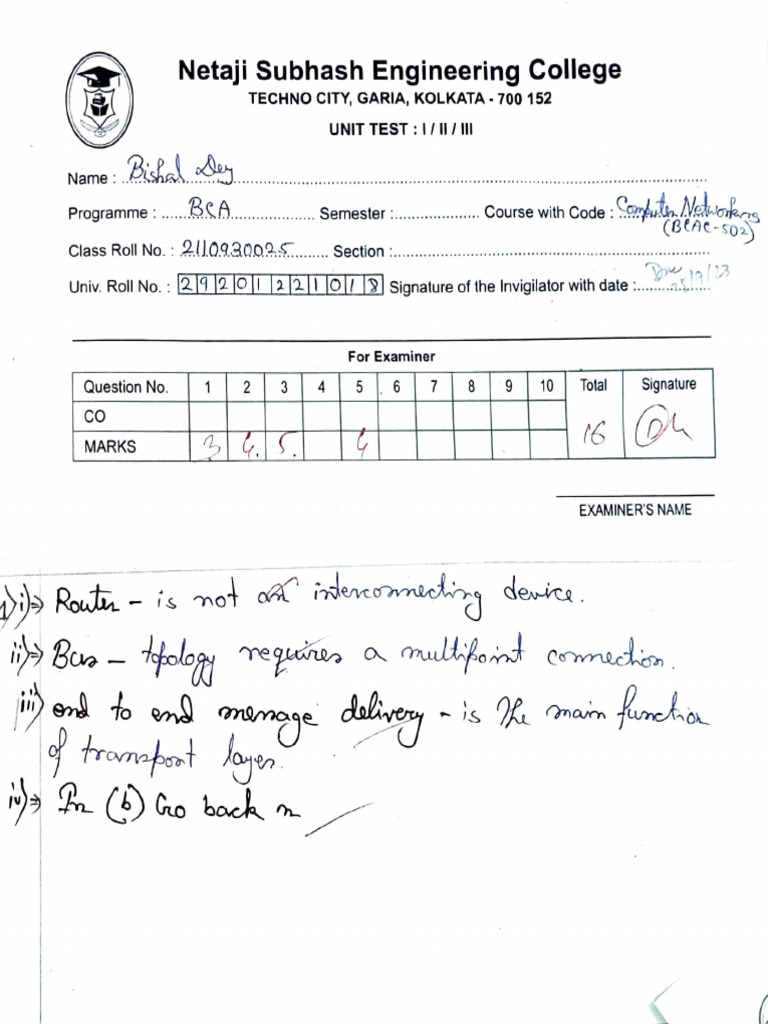 Netaji Subhash Engineering College
TECHNO CITY, GARIA, KOLKATA - 700 152
UNIT TEST : I / II / III
Name : Bishal Dey
Programme : BCA Semester : Course with Code : Computer Networking
(BCAC-502)
Class Roll No. : 2110930025 Section :
Univ. Roll No. : 29201221018 Signature of the Invigilator with date : 25/9/23
For Examiner
Question No. 1 2 3 4 5 6 7 8 9 10 Total Signature
CO
MARKS 3 4. 5. 4 16
EXAMINER'S NAME
1) i)⇒ Router - is not an interconnecting device.
ii)⇒ Bus - topology requires a multipoint connection.
iii) end to end message delivery - is the main function
of transport layer.
iv)⇒ In (b) Go back n